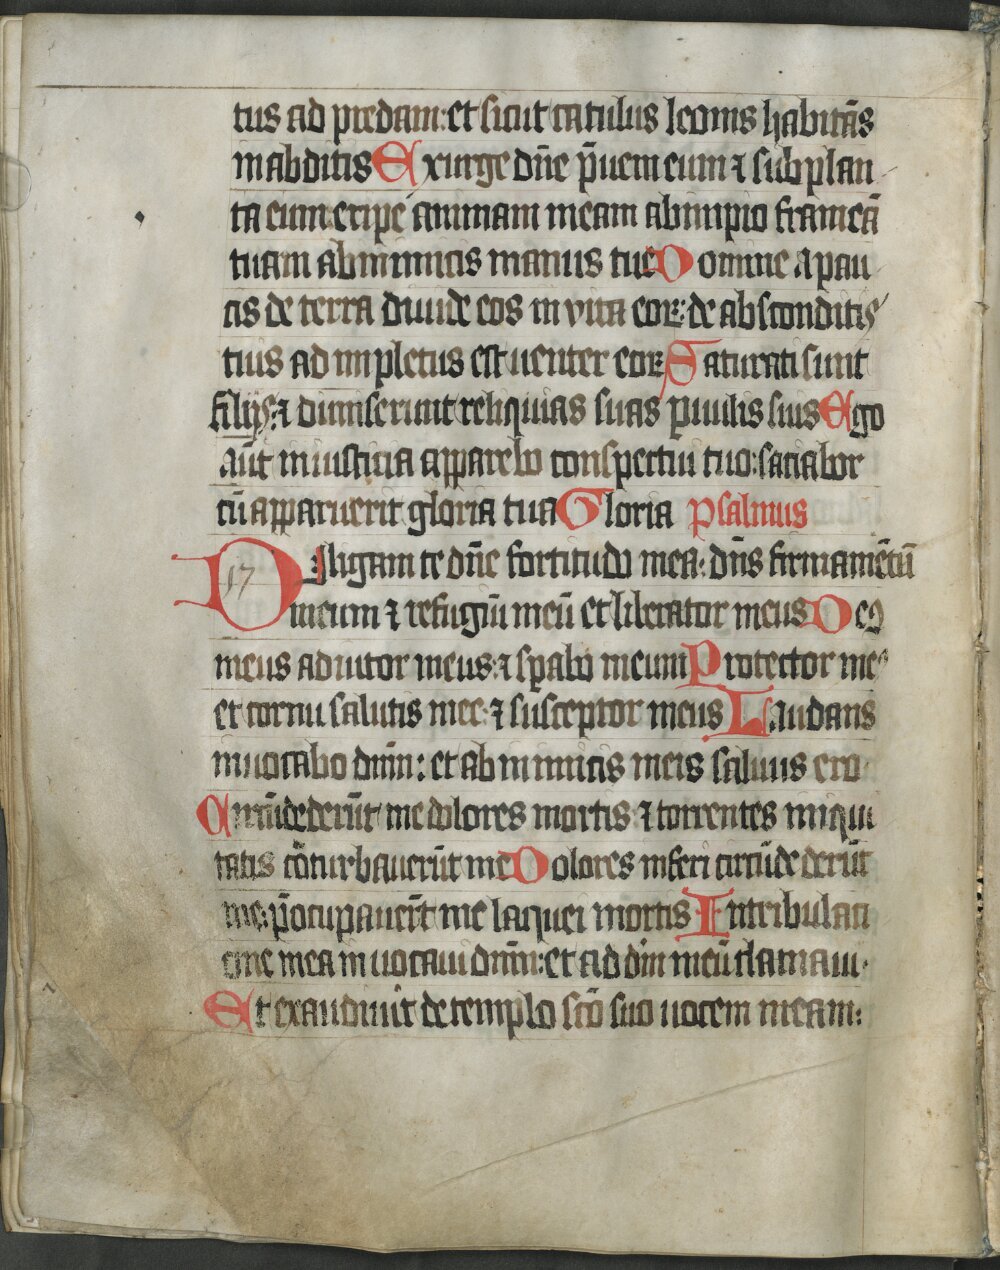 tus ad predam: et sicut catulus leonis habitãs
in abditis Exurge dñe p̃ueni eum ⁊ subplan
ta eum: eripe animam meam ab impio frameã
tuam ab inimicis manus tue Domine a pau
cis de terra diuide eos in vita eoꝝ: de absconditis
tuis adimpletus est uenter eoꝝ Saturati sunt
filijs: ⁊ dimiserunt reliquias suas puulis suis Ego
aũt in iusticia apparebo conspectui tuo: saciabor
cũ apparuerit gloria tua Gloria Psalmus
17
Diligam te dñe fortitudo mea: dñs firmamẽtũ
meum ⁊ refugiũ meũ et liberator meus Deꝰ
meus adiutor meus: ⁊ spabo in eum Protector meꝰ
et cornu salutis mee: ⁊ susceptor meus Laudans
inuocabo dnm̃: et ab inimicis meis saluus ero
Circũdederũt me dolores mortis ⁊ torrentes iniqui
tatis cõturbauerũt me Dolores inferi circũdederũt
me: p̃ocupauerũt me laquei mortis In tribulati
one mea inuocaui dnm̃: et ad dm̃ meũ clamaui
Et exaudiuit de templo scõ suo uocem meam: